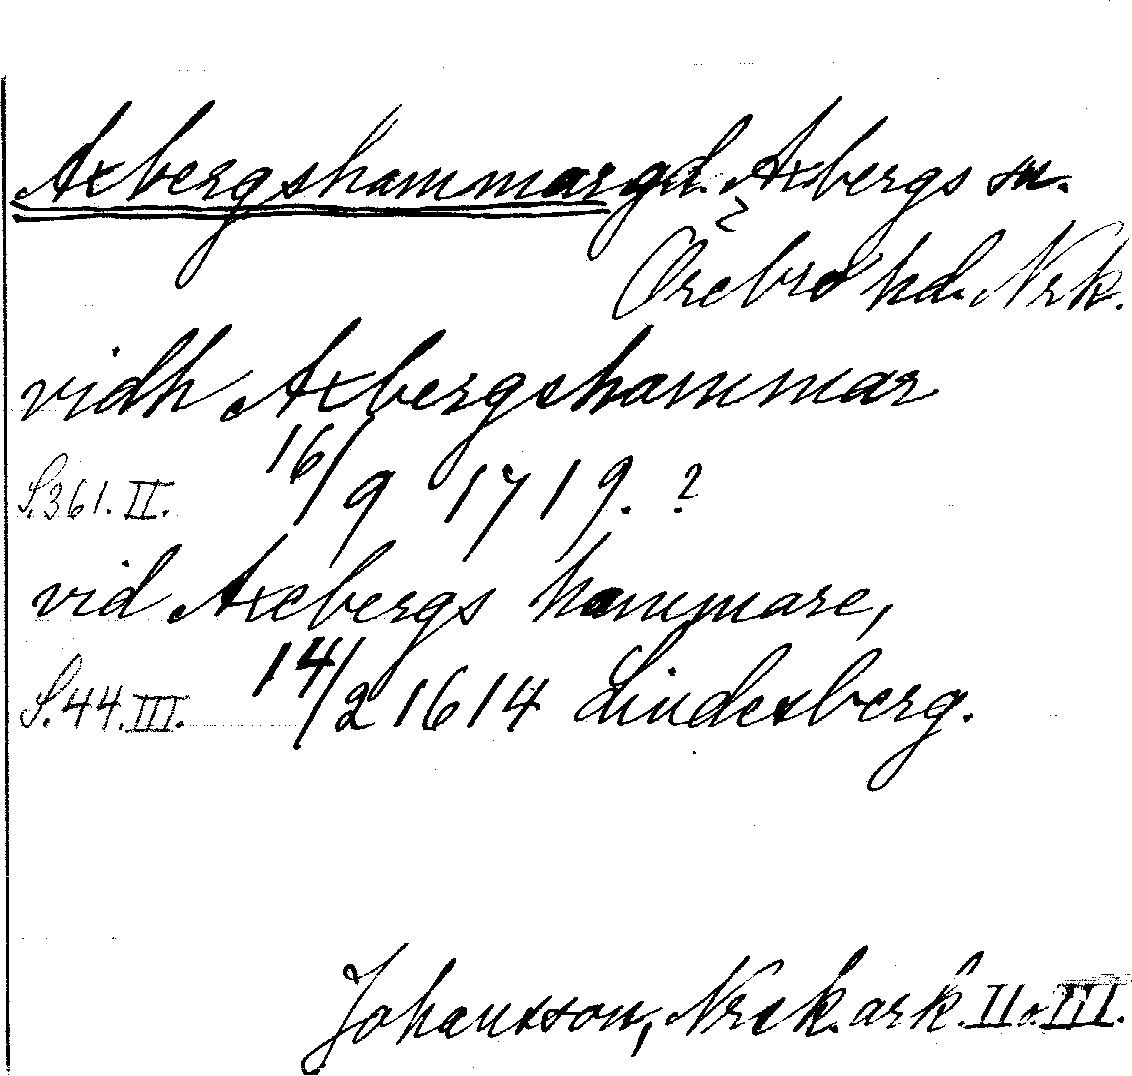 Axbergshammar gd. Axbergs sn.
Örebro hd. Nrk.
vidh Axbergshammar
S.361.II. 16/9 1719. ?
vid Axebergs hammare,
S.44.III. 14/2 1614 Lindesberg.
Johansson, Nrek. ark. II o. III.